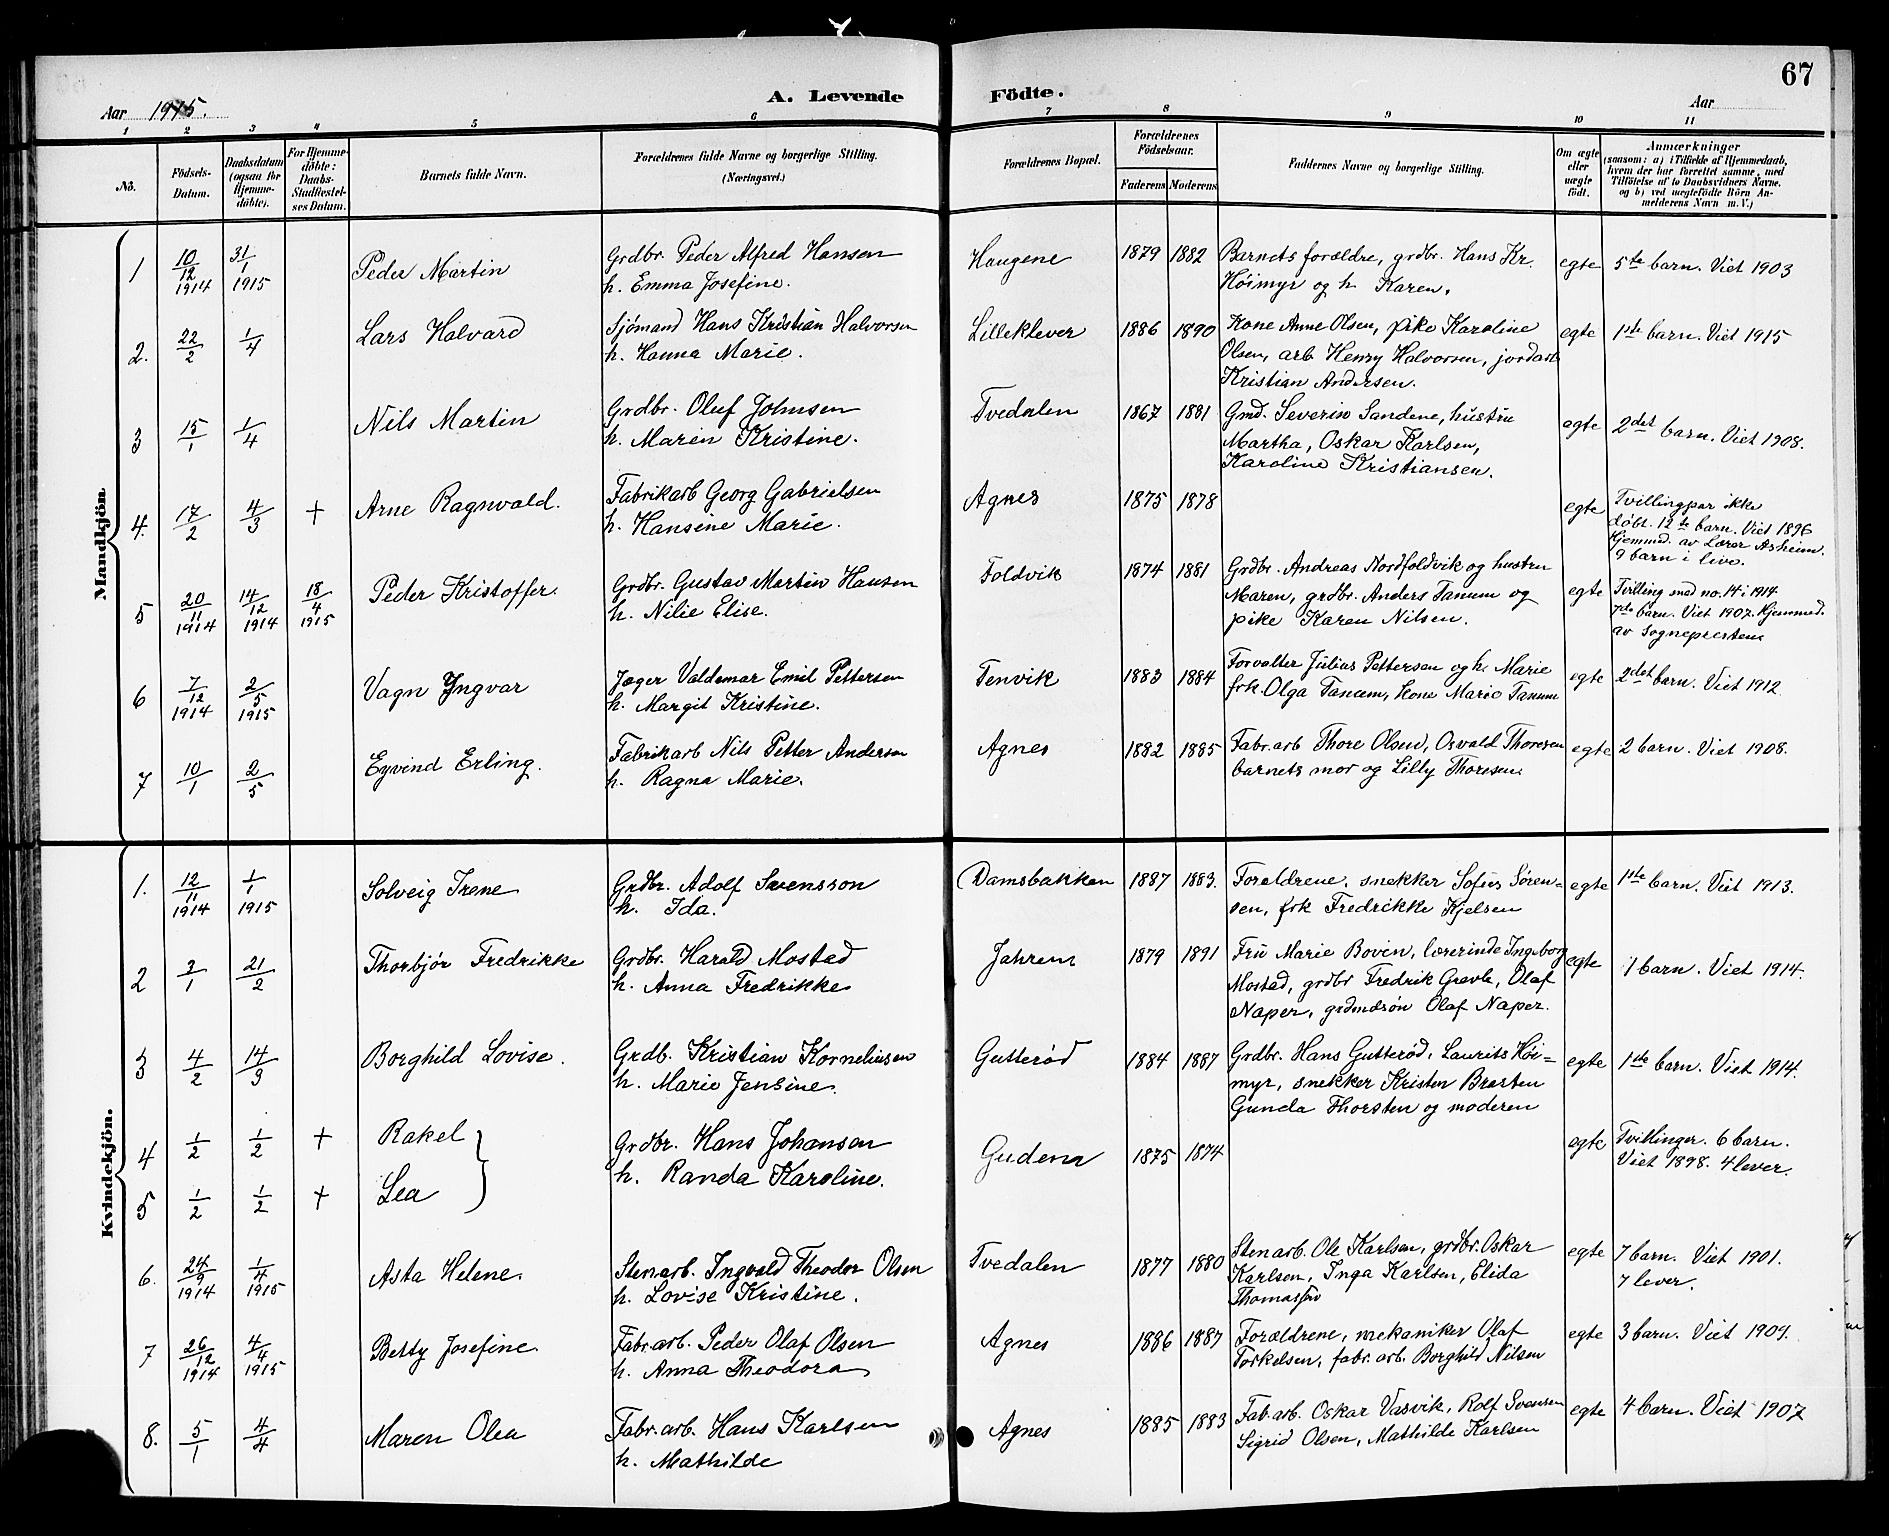 67
Aar 1915.
A. Levende Födte.
Aar
1 2 3 4 5 6 7 8 9 10 11
No.
Födsels-Datum.
Daabsdatum (ogsaa for Hjemme-döbte).
For Hjemme-döbte: Daabs-Stadfæstel-ses Datum.
Barnets fulde Navn.
Forældrenes fulde Navne og borgerlige Stilling. (Næringsvei.)
Forældrenes Bopæl.
Forældrenes Födselsaar.
Faderens Moderens
Faddernes Navne og borgerlige Stilling.
Om ægte eller uægte födt.
Anmærkninger
(saasom: a) i Tilfælde af Hjemmedaab, hvem der har forrettet samme, med Tilföielse af to Daabsvidners Navne, og b) ved uægtefödte Börn An-melderens Navn m. V.)
Mandkjön.
1 10/12 1914 31/1 1915 Peder Martin Grdbr. Peder Alfred Hansen Haugene 1879 1882 Barnets forældre, grdbr. Hans Kr. egte 5te barn. Viet 1903
h. Emma Josefine. Höimyr og h. Karen.
2. 22/2 1/4 Lars Halvard Sjömand Hans Kristian Halvorsen Lilleklever 1886 1890 Kone Anne Olsen, pike Karoline egte 1ste barn. Viet 1915
h. Hanna Marie. Olsen, arb Henry Halvorsen, jordarb
Kristian Andersen.
3 15/1 1/4 Nils Martin Grdbr. Oluf Johnsen Tvedalen 1867 1881 Gmd. Severin Sandene, hustru egte 2det barn. Viet 1908.
h. Maren Kristine. Martha, Oskar Karlsen,
Karoline Kristiansen.
4. 17/2 4/3 + Arne Ragnvald. Fabrikarb Georg Gabrielsen Agnes 1875 1878 egte Tvillingpar ikke
h. Hansine Marie. döbt. 12te barn. Viet 1896
Hjemmd. av Lærer Asheim.
9 barn i live.
5 20/11 1914 14/12 1914 18/4 1915 Peder Kristoffer. Grdbr. Gustav Martin Hansen Foldvik 1874 1881 Grdbr. Andreas Nordfoldvik og hustru egte Tvilling med no. 14 i 1914
h. Nilie Elise. Maren, grdbr. Anders Tanum og 7de barn. Viet 1907. Hjemmed.
pike Karen Nilsen. av Sognepresten
6 7/12 1914 2/5 1915 Vagn Yngvar Jæger Valdemar Emil Pettersen Tenvik 1883 1884 Forvalter Julius Pettersen og h. Marie egte 2det barn. Viet 1912
h. Margit Kristine. frk. Olga Tanum, kone Marie Tanum
7 10/1 2/5 Eyvind Erling. Fabrikarb Nils Petter Andersen Agnes 1882 1885 Fabr.arb Thore Olsen, Osvald Thoresen egte 2 barn. Viet 1908.
h. Ragna Marie. barnets mor og Lilly Thoresen.
Kvindekjön.
1. 12/11 1914 1/1 1915 Solveig Irene Grdbr. Adolf Svensson Damsbakken 1887 1883. Foreldrene, snekker Sofus Sören= egte 1ste barn. Viet 1913.
h. Ida. sen, frk Fredrikke Kjelsen
2 3/1 21/2 Thorbjör Fredrikke Grdbr. Harald Mostad Jahren 1879 1891 Fru Marie Boven, lærerinde Ingeborg egte 1 barn. Viet 1914.
h. Anna Fredrikke Mostad, grdbr Fredrik Grevle, Olaf
Naper, grdmdsön Olaf Naper.
3 4/2 14/3 Borghild Lovise. Grdb. Kristian Korneliusen Gutteröd 1884 1887 Grdbr. Hans Gutteröd, Laurits Höi= egte 1ste barn. Viet 1914.
h. Marie Jensine. myr, snekker Kristen Brørten
Gunda Thorsten og moderen
4 1/2 1/2 + Rakel Grdbr. Hans Johansen Gudem 1875 1874 egte Tvillinger. 6 barn.
Viet 1898. 4 lever.
5 1/2 1/2 + Lea h. Randa Karoline.
6. 24/9 1914 1/4 1915 Asta Helene. Stenarb. Ingvald Theodor Olsen Tvedalen 1877 1880 Stenarb. Ole Karlsen, grdbr. Oskar egte 7 barn. Viet 1901.
h. Lovise Kristine. Karlsen, Inga Karlsen, Elida 7 lever.
Thomassen
7 26/12 1914 4/4 1915 Betty Josefine Fabr.arb. Peder Olaf Olsen Agnes 1886 1887 Forældrene, mekaniker Olaf egte 3 barn. Viet 1909.
h. Anna Theodora Torkelsen, fabr. arb. Borghild Nilsen
8. 5/1 4/4 Maren Olea Fabr.arb. Hans Karlsen Agnes 1885 1883 Fab.arb. Oskar Vasvik, Rolf Svensen egte 4 barn. Viet 1907
h. Mathilde Sigrid Olsen, Mathilde Karlsen